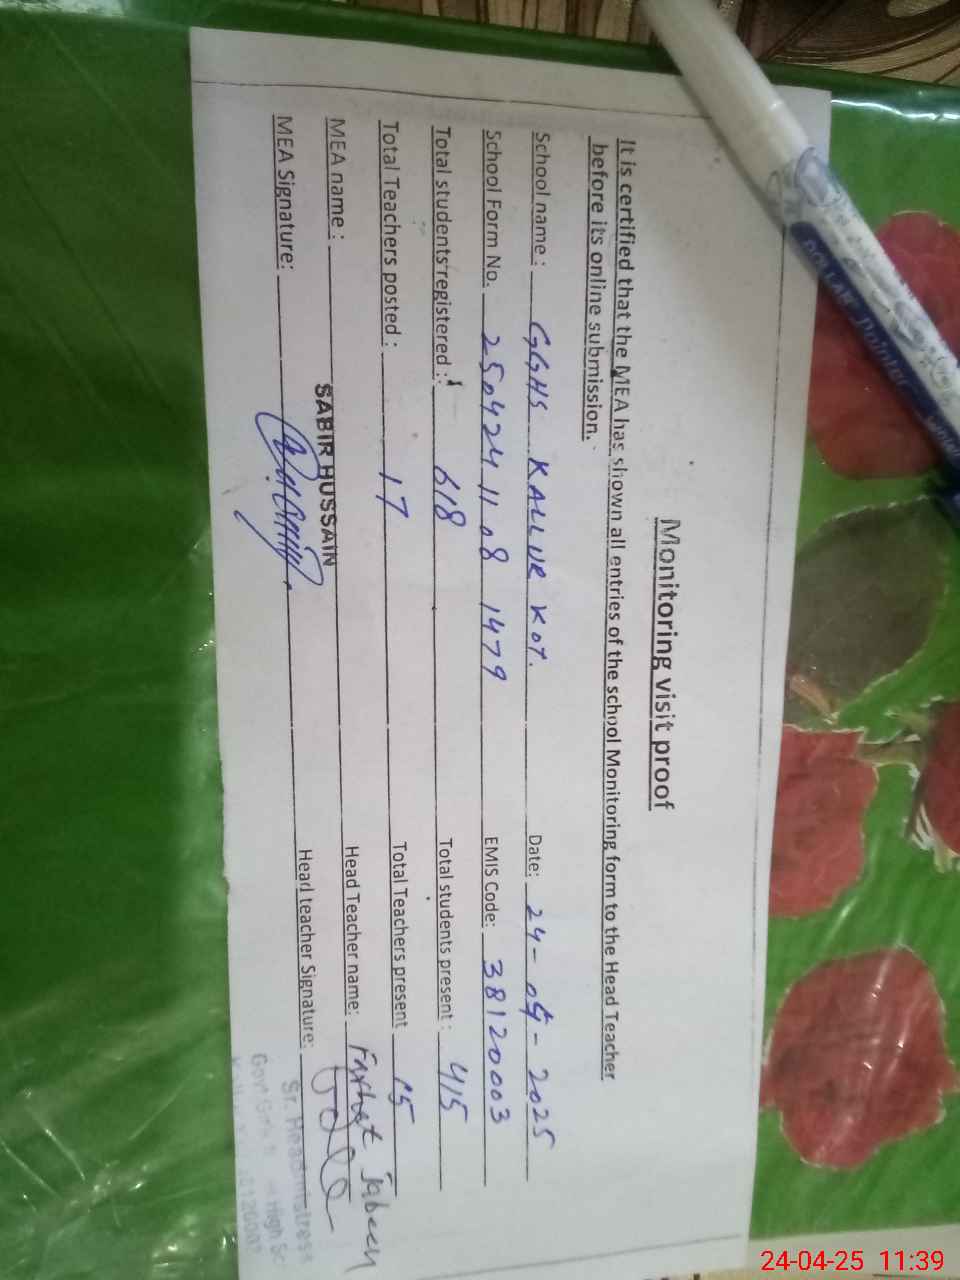 Monitoring visit proof
It is certified that the MEA has shown all entries of the school Monitoring form to the Head Teacher
before its online submission.
School name : GGHS KALLUR KOT. Date: 24-04-2025
School Form No. 250424 11 08 1479 EMIS Code: 38120003
Total students registered : 618 Total students present : 415
Total Teachers posted : 17 Total Teachers present 15
MEA name : SABIR HUSSAIN Head Teacher name: Farhat Jabeen
MEA Signature: Head teacher Signature:
Sr. Headmistress
Govt Girls High
DOLLAR Pointer
24-04-25 11:39